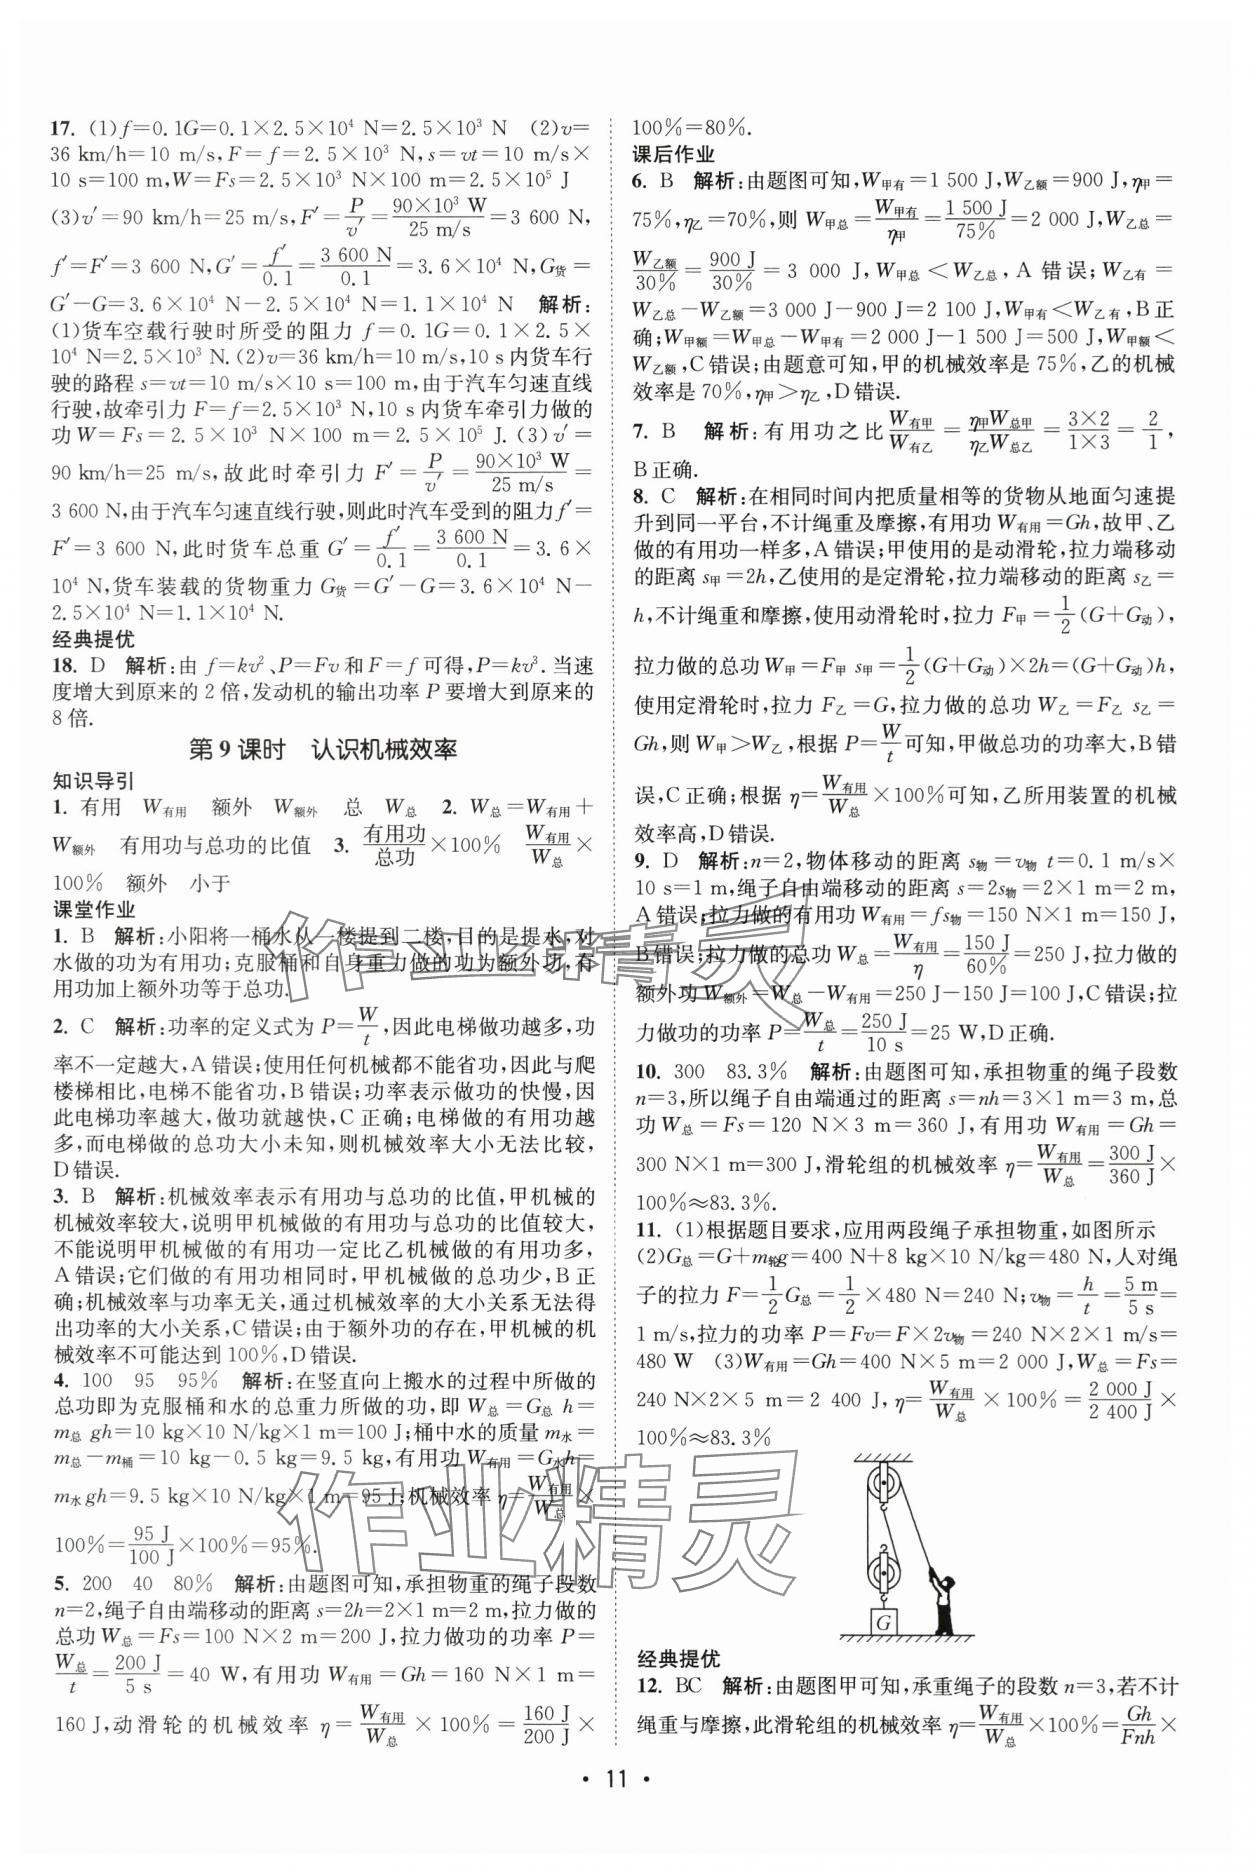 17. (1)f=0.1G=0.1×2.5×10⁴ N=2.5×10³ N (2)v=
36 km/h=10 m/s,F=f=2.5×10³ N,s=vt=10 m/s×
10 s=100 m,W=Fs=2.5×10³ N×100 m=2.5×10⁵ J
(3)v′=90 km/h=25 m/s,F′=P/v′=90×10³ W/25 m/s=3 600 N,
f′=F′=3 600 N,G′=f′/0.1=3 600 N/0.1=3.6×10⁴ N,G货=
G′-G=3.6×10⁴ N-2.5×10⁴ N=1.1×10⁴ N 解析:
(1)货车空载行驶时所受的阻力 f=0.1G=0.1×2.5×
10⁴ N=2.5×10³ N.(2)v=36 km/h=10 m/s,10 s内货车行
驶的路程 s=vt=10 m/s×10 s=100 m,由于汽车匀速直线
行驶,故牵引力 F=f=2.5×10³ N,10 s内货车牵引力做的
功 W=Fs=2.5×10³ N×100 m=2.5×10⁵ J.(3)v′=
90 km/h=25 m/s,故此时牵引力 F′=P/v′=90×10³ W/25 m/s=
3 600 N,由于汽车匀速直线行驶,则此时汽车受到的阻力f′=
F′=3 600 N,此时货车总重 G′=f′/0.1=3 600 N/0.1=3.6×
10⁴ N,货车装载的货物重力 G货=G′-G=3.6×10⁴ N-
2.5×10⁴ N=1.1×10⁴ N.
经典提优
18. D 解析:由 f=kv²、P=Fv和F=f可得,P=kv³.当速
度增大到原来的2倍,发动机的输出功率 P 要增大到原来的
8倍.
第9课时 认识机械效率
知识导引
1. 有用 W有用 额外 W额外 总 W总 2. W总=W有用+
W额外 有用功与总功的比值 3. 有用功/总功×100% W有用/W总×
100% 额外 小于
课堂作业
1. B 解析:小阳将一桶水从一楼提到二楼,目的是提水,对
水做的功为有用功;克服桶和自身重力做的功为额外功,有
用功加上额外功等于总功.
2. C 解析:功率的定义式为 P=W/t,因此电梯做功越多,功
率不一定越大,A错误;使用任何机械都不能省功,因此与爬
楼梯相比,电梯不能省功,B错误;功率表示做功的快慢,因
此电梯功率越大,做功就越快,C正确;电梯做的有用功越
多,而电梯做的总功大小未知,则机械效率大小无法比较,
D错误.
3. B 解析:机械效率表示有用功与总功的比值,甲机械的
机械效率较大,说明甲机械做的有用功与总功的比值较大,
不能说明甲机械做的有用功一定比乙机械做的有用功多,
A错误;它们做的有用功相同时,甲机械做的总功少,B正
确;机械效率与功率无关,通过机械效率的大小关系无法得
出功率的大小关系,C错误;由于额外功的存在,甲机械的机
械效率不可能达到100%,D错误.
4. 100 95 95% 解析:在竖直向上搬水的过程中所做的
总功即为克服桶和水的总重力所做的功,即 W总=G总 h=
m总 gh=10 kg×10 N/kg×1 m=100 J;桶中水的质量 m水=
m总-m桶=10 kg-0.5 kg=9.5 kg,有用功W有用=G水h=
m水gh=9.5 kg×10 N/kg×1 m=95 J;机械效率 η=W有用/W总×
100%=95 J/100 J×100%=95%.
5. 200 40 80% 解析:由题图可知,承担物重的绳子段数
n=2,绳子自由端移动的距离 s=2h=2×1 m=2 m,拉力做的
总功W总=Fs=100 N×2 m=200 J,拉力做功的功率 P=
W总/t=200 J/5 s=40 W,有用功 W有用=Gh=160 N×1 m=
160 J,动滑轮的机械效率 η=W有用/W总×100%=160 J/200 J×
100%=80%.
课后作业
6. B 解析:由题图可知,W甲有=1 500 J,W乙额=900 J,η甲=
75%,η乙=70%,则 W甲总=W甲有/η甲=1 500 J/75%=2 000 J,W乙总=
W乙额/30%=900 J/30%=3 000 J,W甲总<W乙总,A错误;W乙有=
W乙总-W乙额=3 000 J-900 J=2 100 J,W甲有<W乙有,B正
确;W甲额=W甲总-W甲有=2 000 J-1 500 J=500 J,W甲额<
W乙额,C错误;由题意可知,甲的机械效率是75%,乙的机械
效率是70%,η甲>η乙,D错误.
7. B 解析:有用功之比W有甲/W有乙=η甲W总甲/η乙W总乙=3×2/1×3=2/1,
B正确.
8. C 解析:在相同时间内把质量相等的货物从地面匀速提
升到同一平台,不计绳重及摩擦,有用功W有用=Gh,故甲、乙
做的有用功一样多,A错误;甲使用的是动滑轮,拉力端移动
的距离 s甲=2h,乙使用的是定滑轮,拉力端移动的距离 s乙=
h,不计绳重和摩擦,使用动滑轮时,拉力 F甲=1/2(G+G动),
拉力做的总功 W甲=F甲 s甲=1/2(G+G动)×2h=(G+G动)h,
使用定滑轮时,拉力 F乙=G,拉力做的总功 W乙=F乙 s乙=
Gh,则 W甲>W乙,根据 P=W/t可知,甲做总功的功率大,B错
误,C正确;根据 η=W有用/W总×100%可知,乙所用装置的机械
效率高,D错误.
9. D 解析:n=2,物体移动的距离 s物=v物 t=0.1 m/s×
10 s=1 m,绳子自由端移动的距离 s=2s物=2×1 m=2 m,
A错误;拉力做的有用功 W有用=fs物=150 N×1 m=150 J,
B错误;拉力做的总功 W总=W有用/η=150 J/60%=250 J,拉力做的
额外功W额外=W总-W有用=250 J-150 J=100 J,C错误;拉
力做功的功率 P=W总/t=250 J/10 s=25 W,D正确.
10. 300 83.3% 解析:由题图可知,承担物重的绳子段数
n=3,所以绳子自由端通过的距离 s=nh=3×1 m=3 m,总
功 W总=Fs=120 N×3 m=360 J,有用功 W有用=Gh=
300 N×1 m=300 J,滑轮组的机械效率 η=W有用/W总=300 J/360 J×
100%≈83.3%.
11. (1)根据题目要求,应用两段绳子承担物重,如图所示
(2)G总=G+m轮g=400 N+8 kg×10 N/kg=480 N,人对绳
子的拉力 F=1/2G总=1/2×480 N=240 N;v物=h/t=5 m/5 s=
1 m/s,拉力的功率 P=Fv=F×2v物=240 N×2×1 m/s=
480 W (3)W有用=Gh=400 N×5 m=2 000 J,W总=Fs=
240 N×2×5 m=2 400 J,η=W有用/W总×100%=2 000 J/2 400 J×
100%≈83.3%
G
经典提优
12. BC 解析:由题图甲可知,承重绳子的段数 n=3,若不计
绳重与摩擦,此滑轮组的机械效率 η=W有用/W总×100%=Gh/Fnh×
· 11 ·
作业精灵
作业精灵